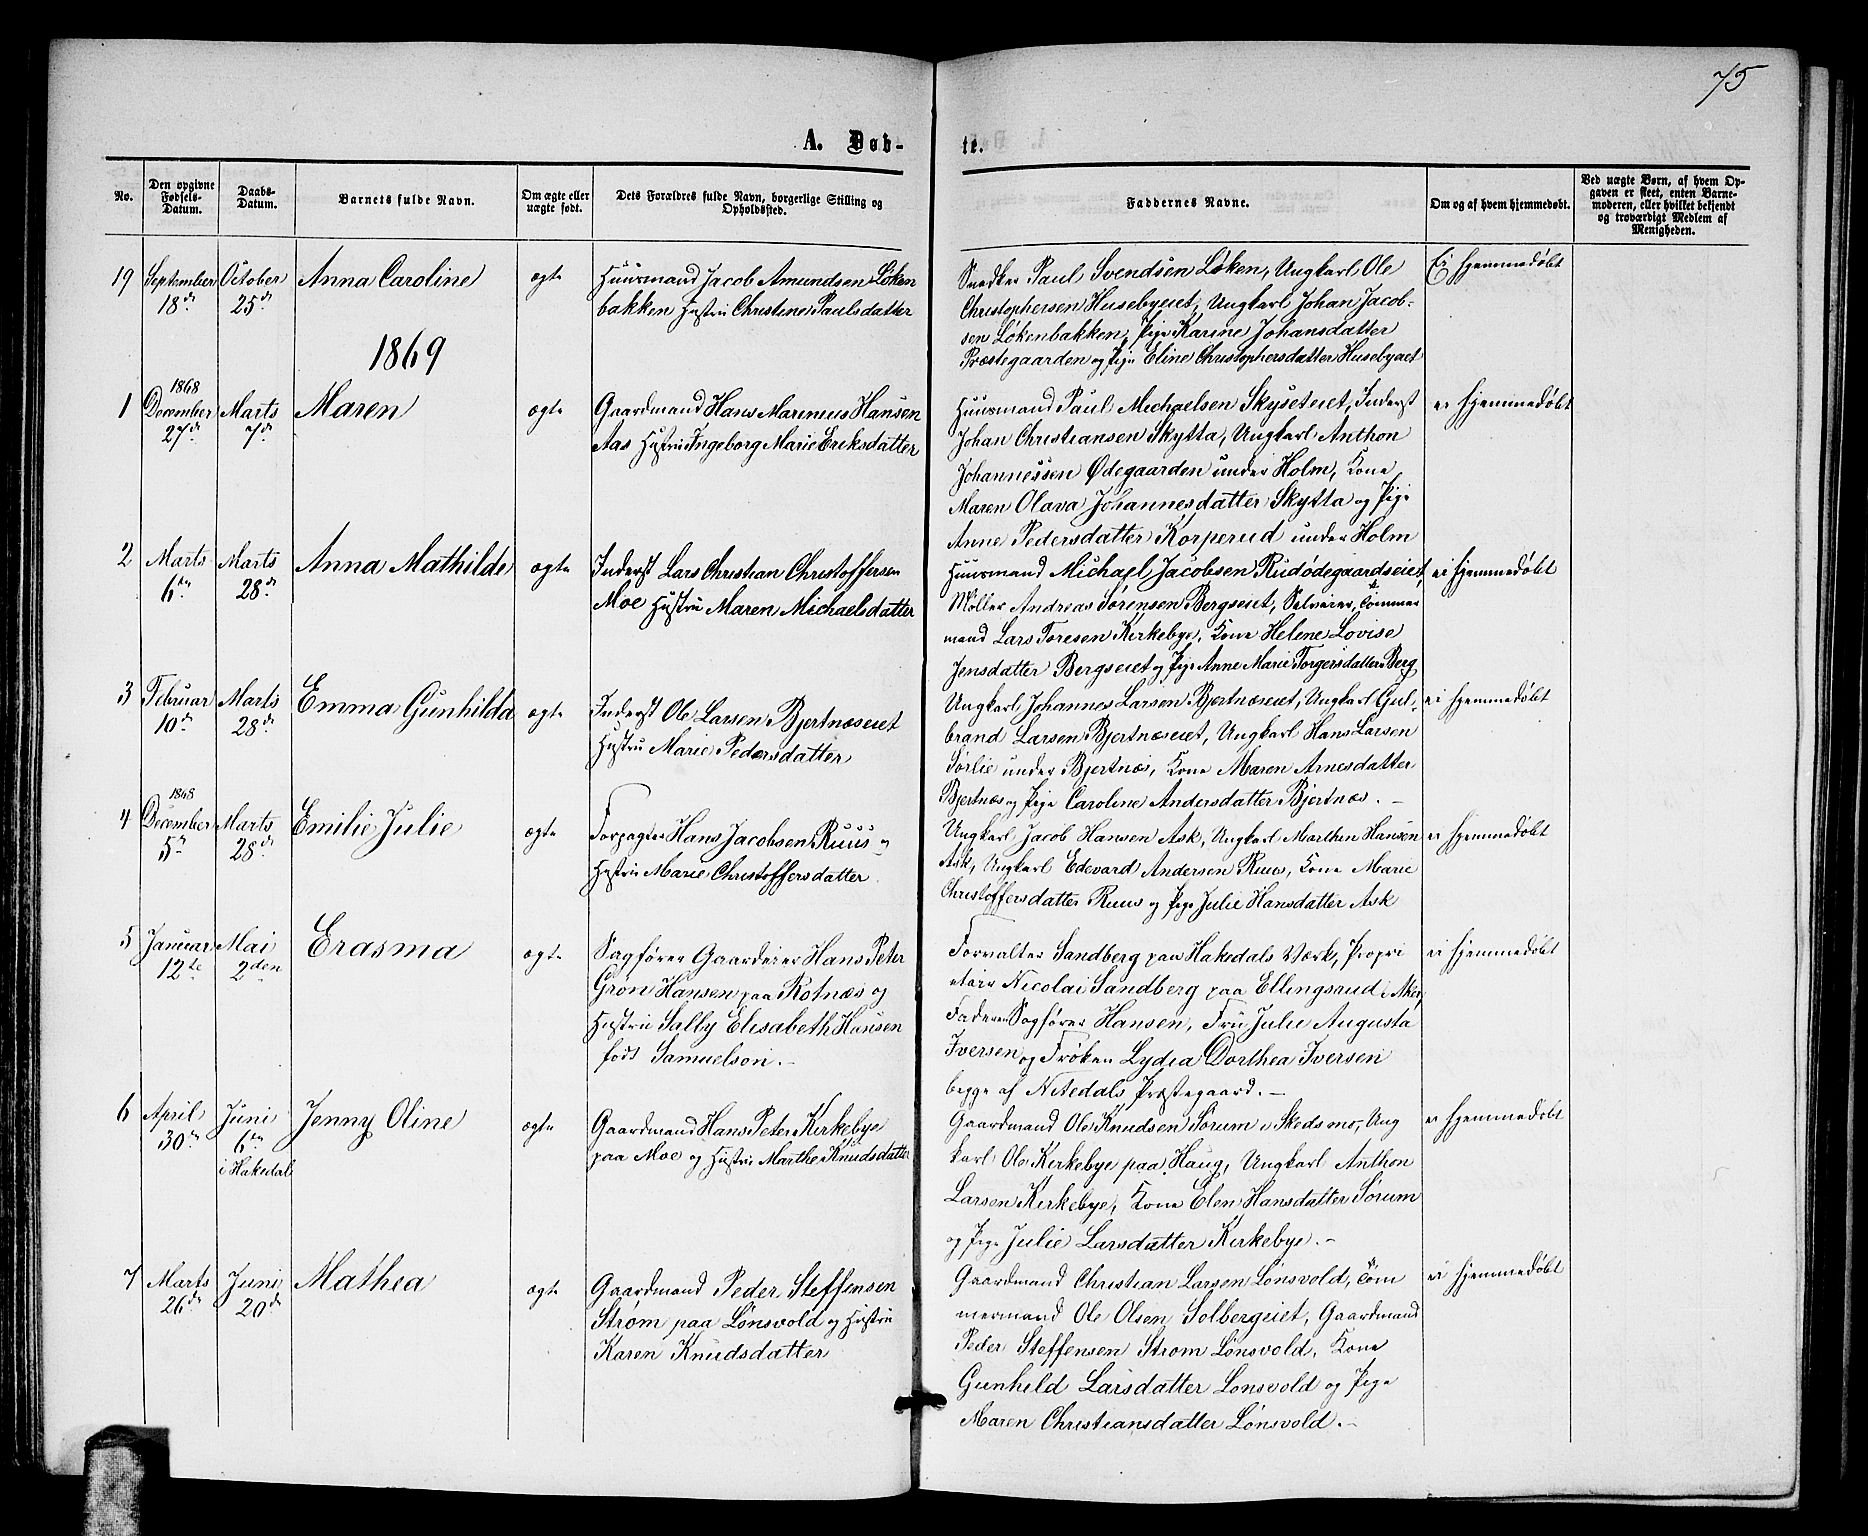 75
A. Døb-
te.
No.
Den opgivne
Fødsels-
Datum.
Daabs-
Datum.
Barnets fulde Navn.
Om ægte eller
uægte født.
Dets Forældres fulde Navn, borgerlige Stilling og
Opholdssted.
Faddernes Navne.
Om og af hvem hjemmedøbt.
Ved uægte Børn, af hvem Op-
gaven er skeet, enten Barne-
moderen, eller hvilket bekjendt
og troværdigt Medlem af
Menigheden.
19
September
18de
October
25de
Anna Caroline
ægte
Huusmand Jacob Amundsen Løken
bakken Hustru Christine Paulsdatter
Snedker Paul Svendsen Løken, Ungkarl Ole
Christophersen Husebyeiet, Ungkarl Johan Jacob-
sen Løkenbakken, Pige Karine Johansdatter
Præstegaarden og Pige Eline Christophersdatter Husebyeiet
Ei hjemmedøbt
1869
1
1868
December
27de
Marts
7de
Maren
ægte
Gaardmand Hans Marinius Hansen
Aas Hustru Ingeborg Marie Eriksdatter
Huusmand Paul Michaelsen Skyseteiet, Inderst
Johan Christiansen Skytta, Ungkarl Anthon
Johannessen Ødegaarden under Holm, Kone
Maren Olava Johannesdatter Skytta og Pige
Anne Pedersdatter Korperud under Holm
ei hjemmedøbt
2
Marts
6te
Marts
28de
Anna Mathilde
ægte
Inderst Lars Christian Christoffersen
Moe Hustru Maren Michaelsdatter
Huusmand Michael Jacobsen Rudødegaardseiet,
Møller Andreas Sørensen Bergseiet, Selveier, Tømmer
mand Lars Toresen Kirkebye, Kone Helene Lovise
Jensdatter Bergseiet og Pige Anne Marie Torgersdatter Berg
ei hjemmedøbt
3
Februar
10de
Marts
28de
Emma Gunhilda
ægte
Inderst Ole Larsen Bjertnæseiet
Hustru Marie Pedersdatter
Ungkarl Johannes Larsen Bjertnæseiet, Ungkarl Gul-
brand Larsen Bjertnæseiet, Ungkarl Hans Larsen
Sørlie under Bjertnæs, Kone Maren Arnesdatter
Bjertnæs og Pige Caroline Andersdatter Bjertnæs. —
ei hjemmedøbt
4
1868
December
5te
Marts
28de
Emilie Julie
ægte
Forpagter Hans Jacobsen Ruus og
Hustru Marie Christoffersdatter
Ungkarl Jacob Hansen Ask, Ungkarl Marthin Hansen
Ask, Ungkarl Edevard Andersen Ruus, Kone Marie
Christoffersdatter Ruus og Pige Julie Hansdatter Ask
ei hjemmedøbt
5
Januar
12te
Mai
2den
Erasma
ægte
Sagfører Gaardeier Hans Peter
Grøn Hansen paa Rotnæs og
Hustru Sally Elisabeth Hansen
født Samuelson. —
Forvalter Sandberg paa Hakedals Værk, Propri
etair Nicolai Sandberg paa Ellingsrud i Aker,
Faderen Sagfører Hansen, Fru Julie Augusta
Iversen og Frøken Lydia Dorthea Iversen
begge af Nitedals Præstegaard. —
ei hjemmedøbt
6
April
30te
Juni
6te
i Hakedal
Jenny Oline
ægte
Gaardmand Hans Peter Kirkebye
paa Moe og Hustru Marthe Knudsdatter
Gaardmand Ole Knudsen Sørum i Skedsmo, Ung
karl Ole Kirkebye paa Haug, Ungkarl Anthon
Larsen Kirkebye, Kone Elen Hansdatter Sørum
og Pige Julie Larsdatter Kirkebye. —
ei hjemmedøbt
7
Marts
26de
Juni
20de
Mathea
ægte
Gaardmand Peder Steffensen
Strøm paa Lønsvold og Hustru
Karen Knudsdatter
Gaardmand Christian Larsen Lønsvold, Tøm
mermand Ole Olsen Solbergeiet, Gaardmand
Peder Steffensen Strøm Lønsvold, Kone
Gunhild Larsdatter Lønsvold og Pige
Maren Christiansdatter Lønsvold. —
ei hjemmedøbt